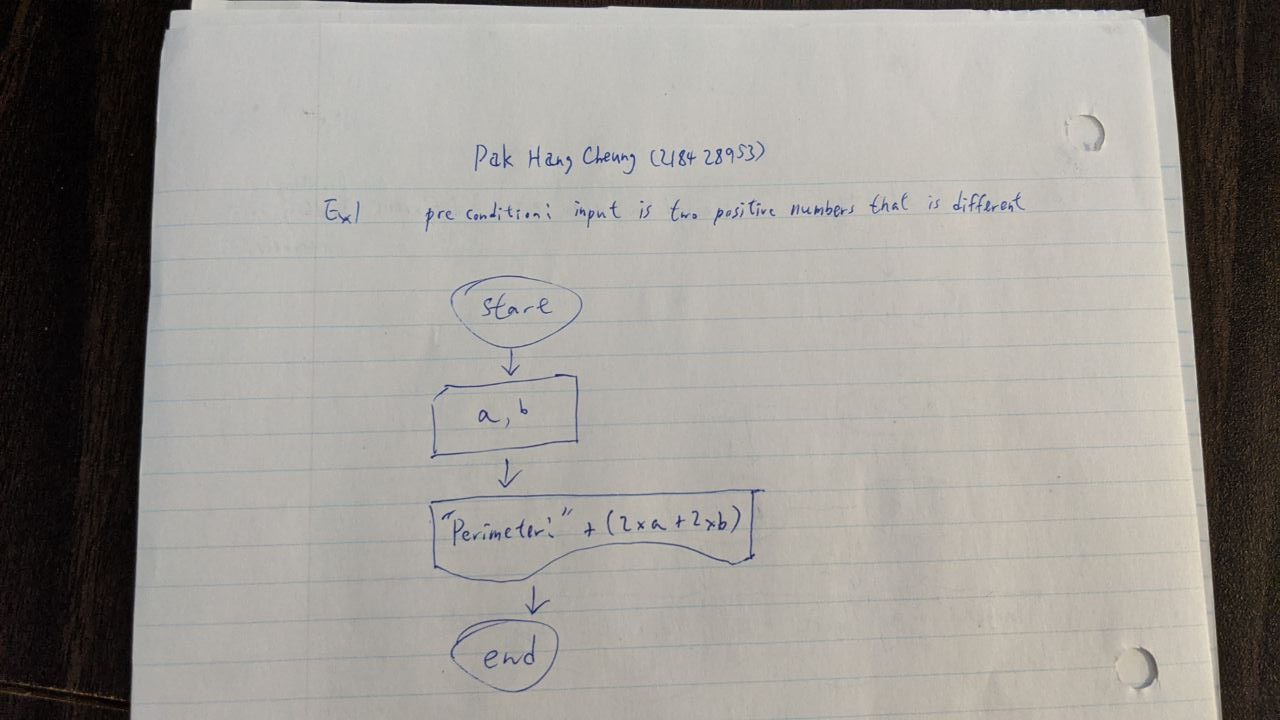 Pak Hang Cheung (218428953)
Ex1 pre condition: input is two positive numbers that is different
start
a, b
"Perimeter:" + (2×a + 2×b)
end